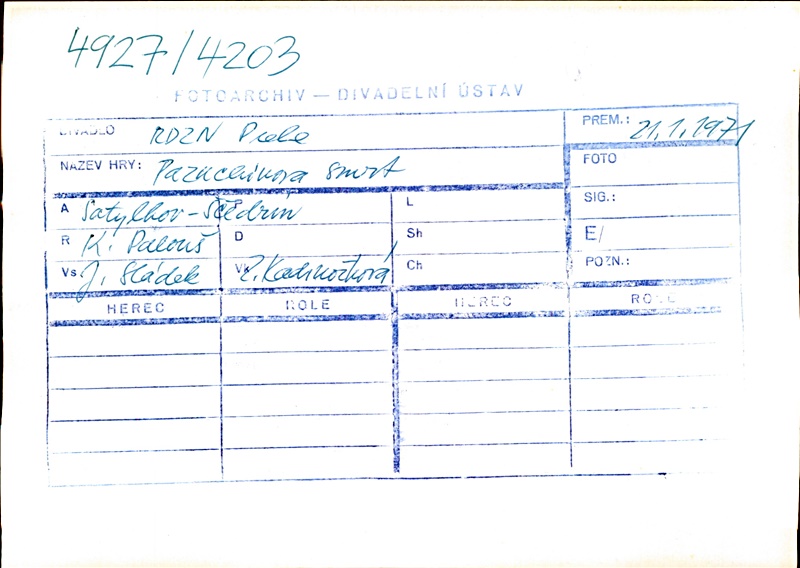 4927/4203
FOTOARCHIV — DIVADELNÍ ÚSTAV
DIVADLO RDZN Praha PREM.: 21.1.1971
NÁZEV HRY: Pazuchinova smrt FOTO
A Satylkov-Ščedrin L SIG.:
R K. Palouš D Sh E/
Vs. J. Sládek Vk Z. Kadrnožková Ch POZN.:
HEREC ROLE HEREC ROLE